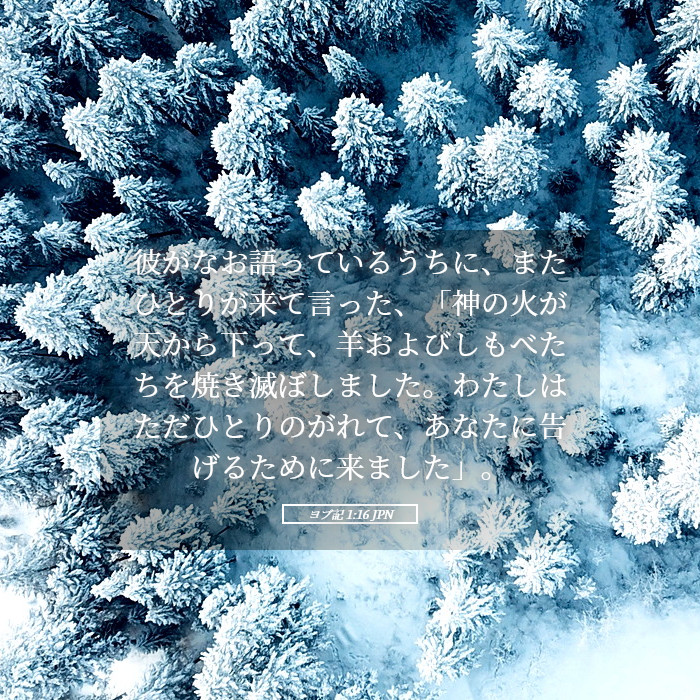 彼がなお語っているうちに、また
ひとりが来て言った、「神の火が
天から下って、羊およびしもべた
ちを焼き滅ぼしました。わたしは
ただひとりのがれて、あなたに告
げるために来ました」。
ヨブ記 1:16 JPN